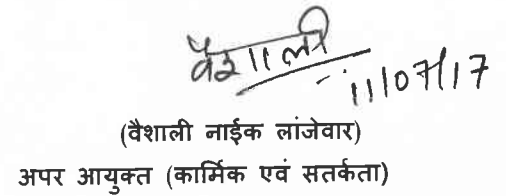 वैशाली
11/07/17
(वैशाली नाईक लांजेवार)
अपर आयुक्त (कार्मिक एवं सतर्कता)